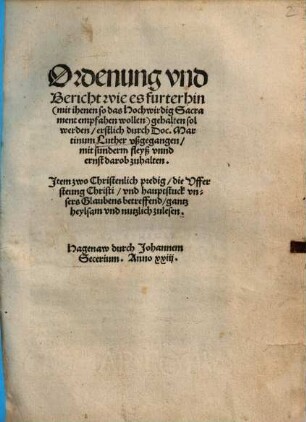 Ordenung vnd
Bericht wie es furterhin
(mit ihenen so das Hochwirdig Sacra
ment empfahen wollen) gehalten sol
werden / erstlich durch Doc. Mar
tinum Luther vßgegangen /
mit sünderm fleyß vnnd
ernst darob zuhalten.
Item zwo Christenlich predig / die Vffer
steung Christi / vnd hauptstuck vn⸗
sers Glaubens betreffend / gantz
heylsam vnd nutzlich zulesen.
Hagenaw durch Johannem
Secerium. Anno xxiij.